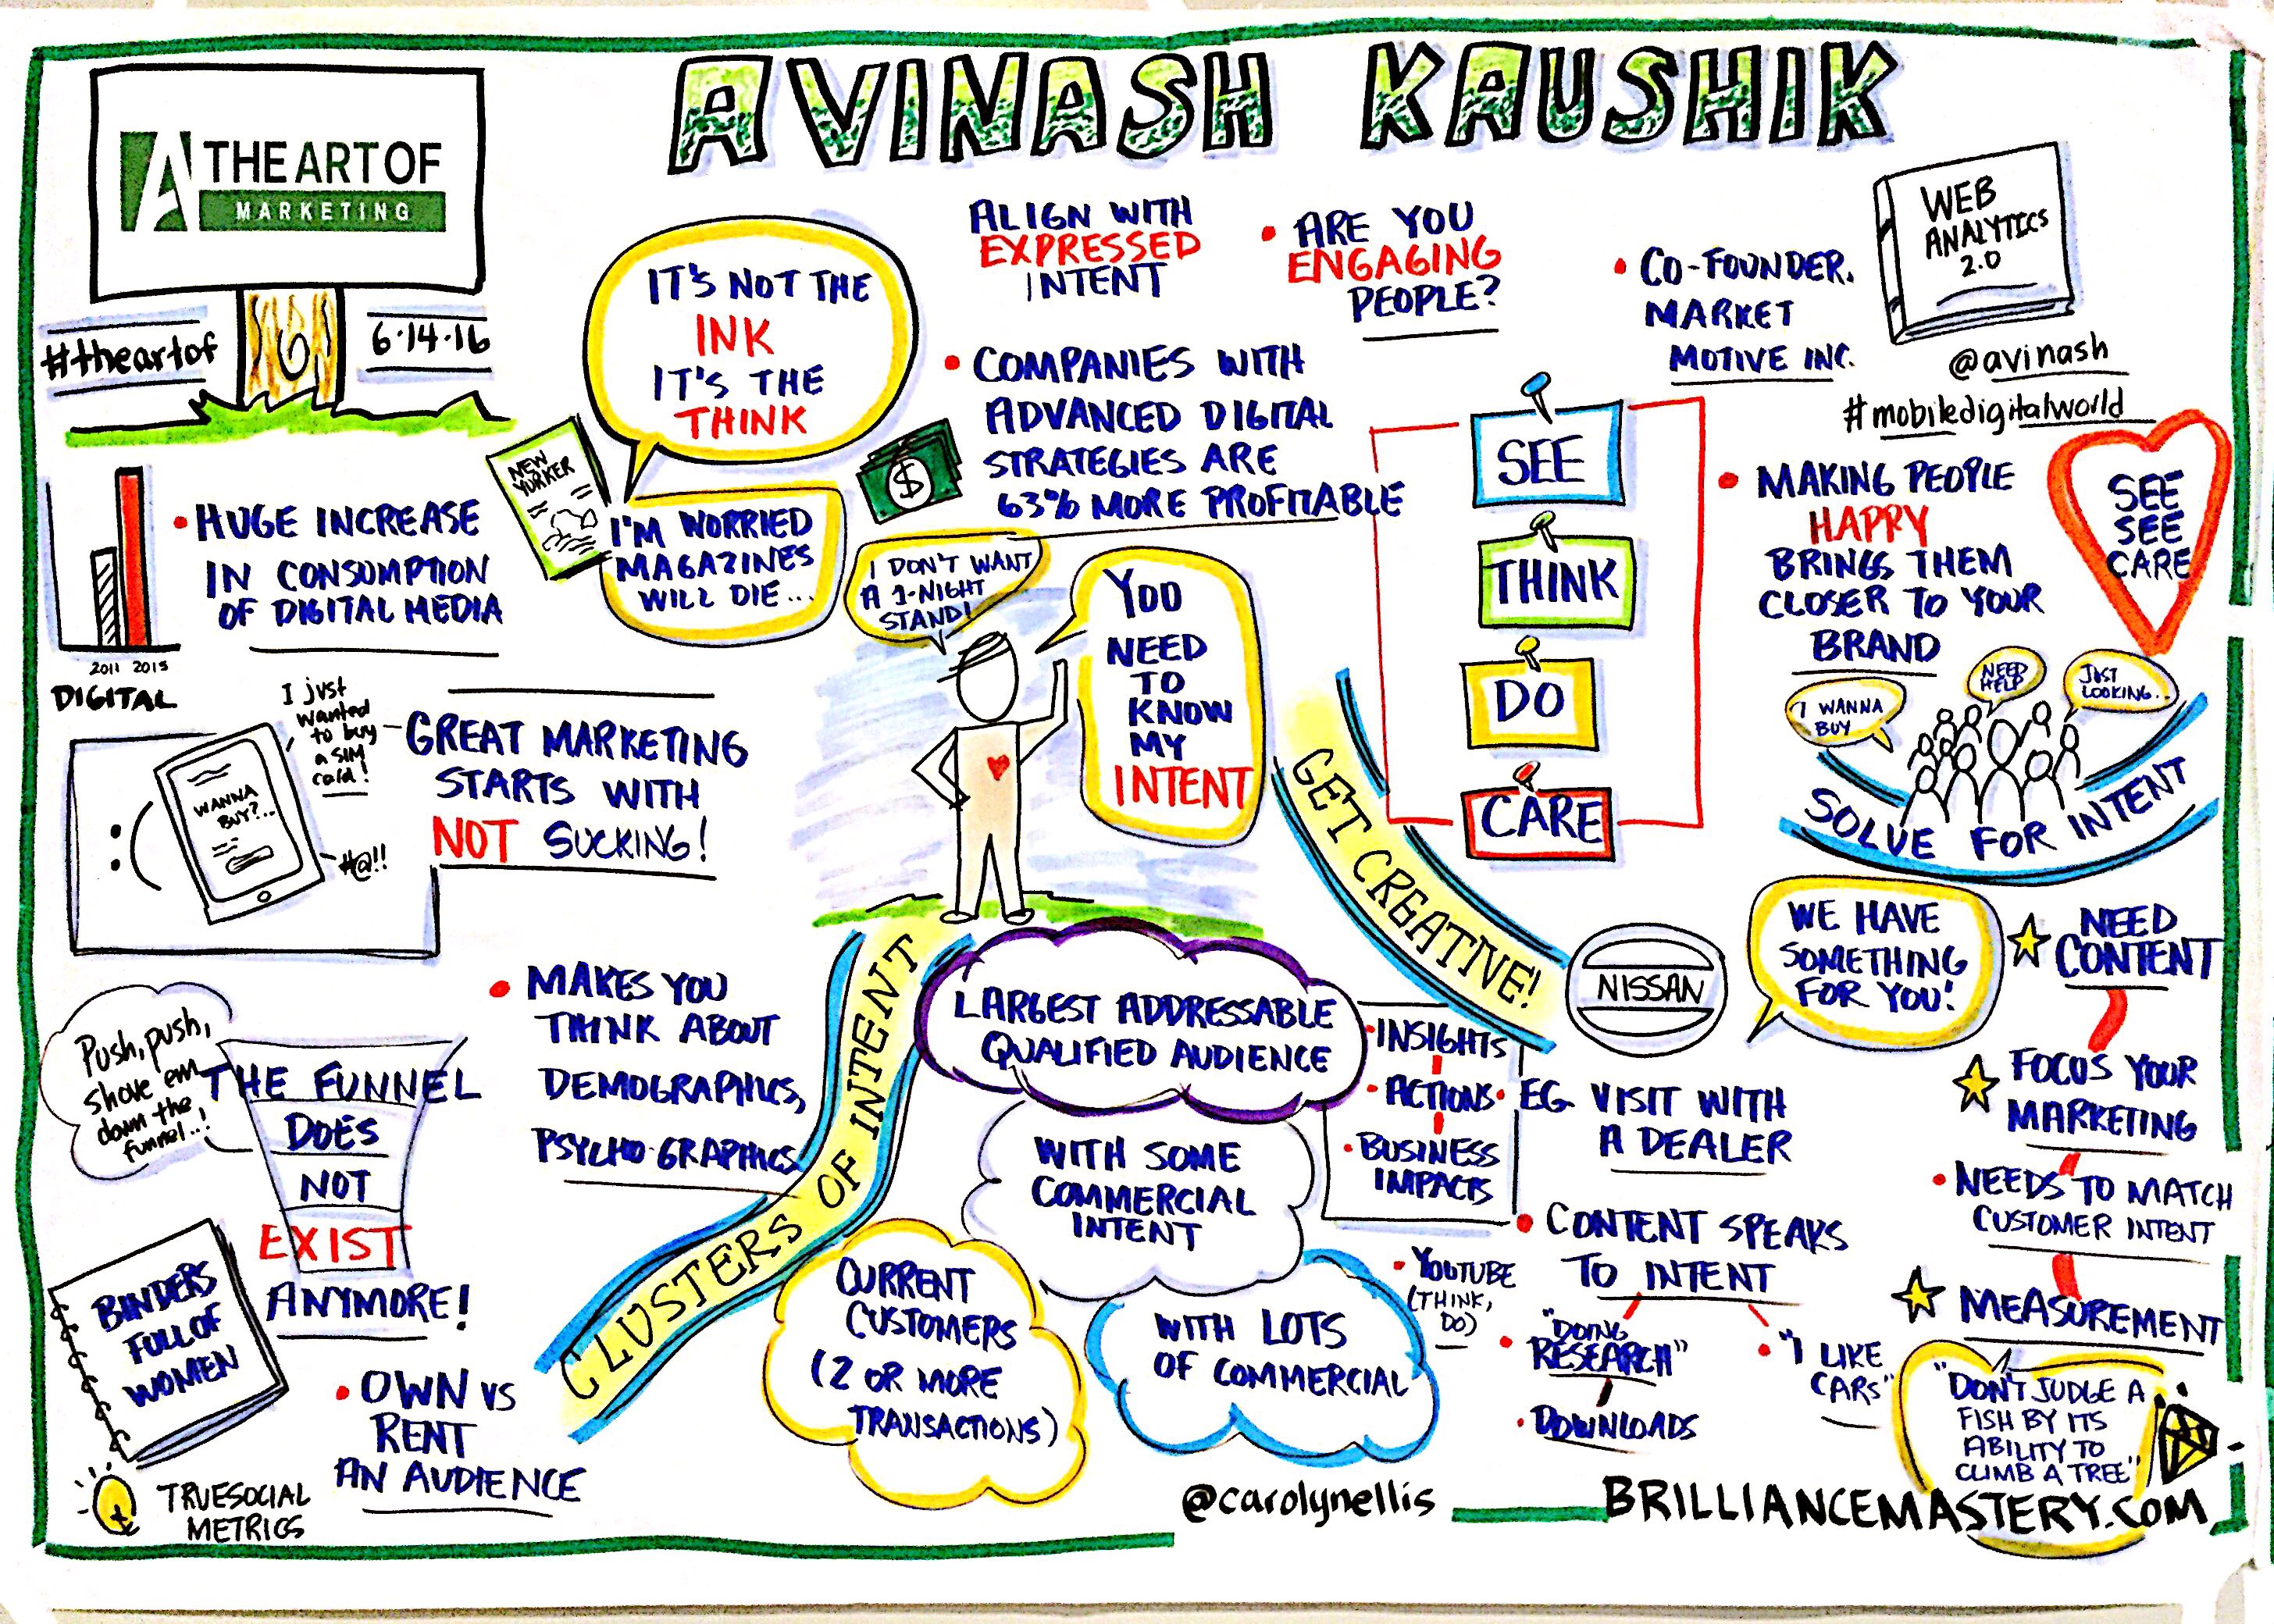 AVINASH KAUSHIK
A THE ART OF
MARKETING
#theartof
6·14·16
IT'S NOT THE
INK
IT'S THE
THINK
NEW
YORKER
I'M WORRIED
MAGAZINES
WILL DIE...
ALIGN WITH
EXPRESSED
INTENT
• ARE YOU
ENGAGING
PEOPLE?
• CO-FOUNDER.
MARKET
MOTIVE INC.
WEB
ANALYTICS
2.0
@avinash
#mobiledigitalworld
• COMPANIES WITH
ADVANCED DIGITAL
STRATEGIES ARE
63% MORE PROFITABLE
$
• HUGE INCREASE
IN CONSUMPTION
OF DIGITAL MEDIA
2011 2015
DIGITAL
I DON'T WANT
A 1-NIGHT
STAND!
YOU
NEED
TO
KNOW
MY
INTENT
SEE
THINK
DO
CARE
• MAKING PEOPLE
HAPPY
BRINGS THEM
CLOSER TO YOUR
BRAND
SEE
SEE
CARE
I WANNA
BUY
NEED
HELP
JUST
LOOKING..
SOLVE FOR INTENT
I just
wanted
to buy
a SIM
card!
WANNA
BUY?...
#@!!
:(
GREAT MARKETING
STARTS WITH
NOT SUCKING!
GET CREATIVE!
NISSAN
WE HAVE
SOMETHING
FOR YOU!
NEED
CONTENT
FOCUS YOUR
MARKETING
• NEEDS TO MATCH
CUSTOMER INTENT
MEASUREMENT
"DON'T JUDGE A
FISH BY ITS
ABILITY TO
CLIMB A TREE"
Push, push,
shove em
down the
funnel..!
THE FUNNEL
DOES
NOT
EXIST
ANYMORE!
• MAKES YOU
THINK ABOUT
DEMOGRAPHICS,
PSYCHO-GRAPHICS
CLUSTERS OF INTENT
LARGEST ADDRESSABLE
QUALIFIED AUDIENCE
WITH SOME
COMMERCIAL
INTENT
CURRENT
CUSTOMERS
(2 OR MORE
TRANSACTIONS)
WITH LOTS
OF COMMERCIAL
• INSIGHTS
• ACTIONS
• BUSINESS
IMPACTS
• EG. VISIT WITH
A DEALER
• CONTENT SPEAKS
TO INTENT
• YOUTUBE
(THINK,
DO)
• "DOING
RESEARCH"
• DOWNLOADS
• "I LIKE
CARS"
BINDERS
FULL OF
WOMEN
• OWN VS
RENT
AN AUDIENCE
TRUESOCIAL
METRICS
@carolynellis
BRILLIANCEMASTERY.COM